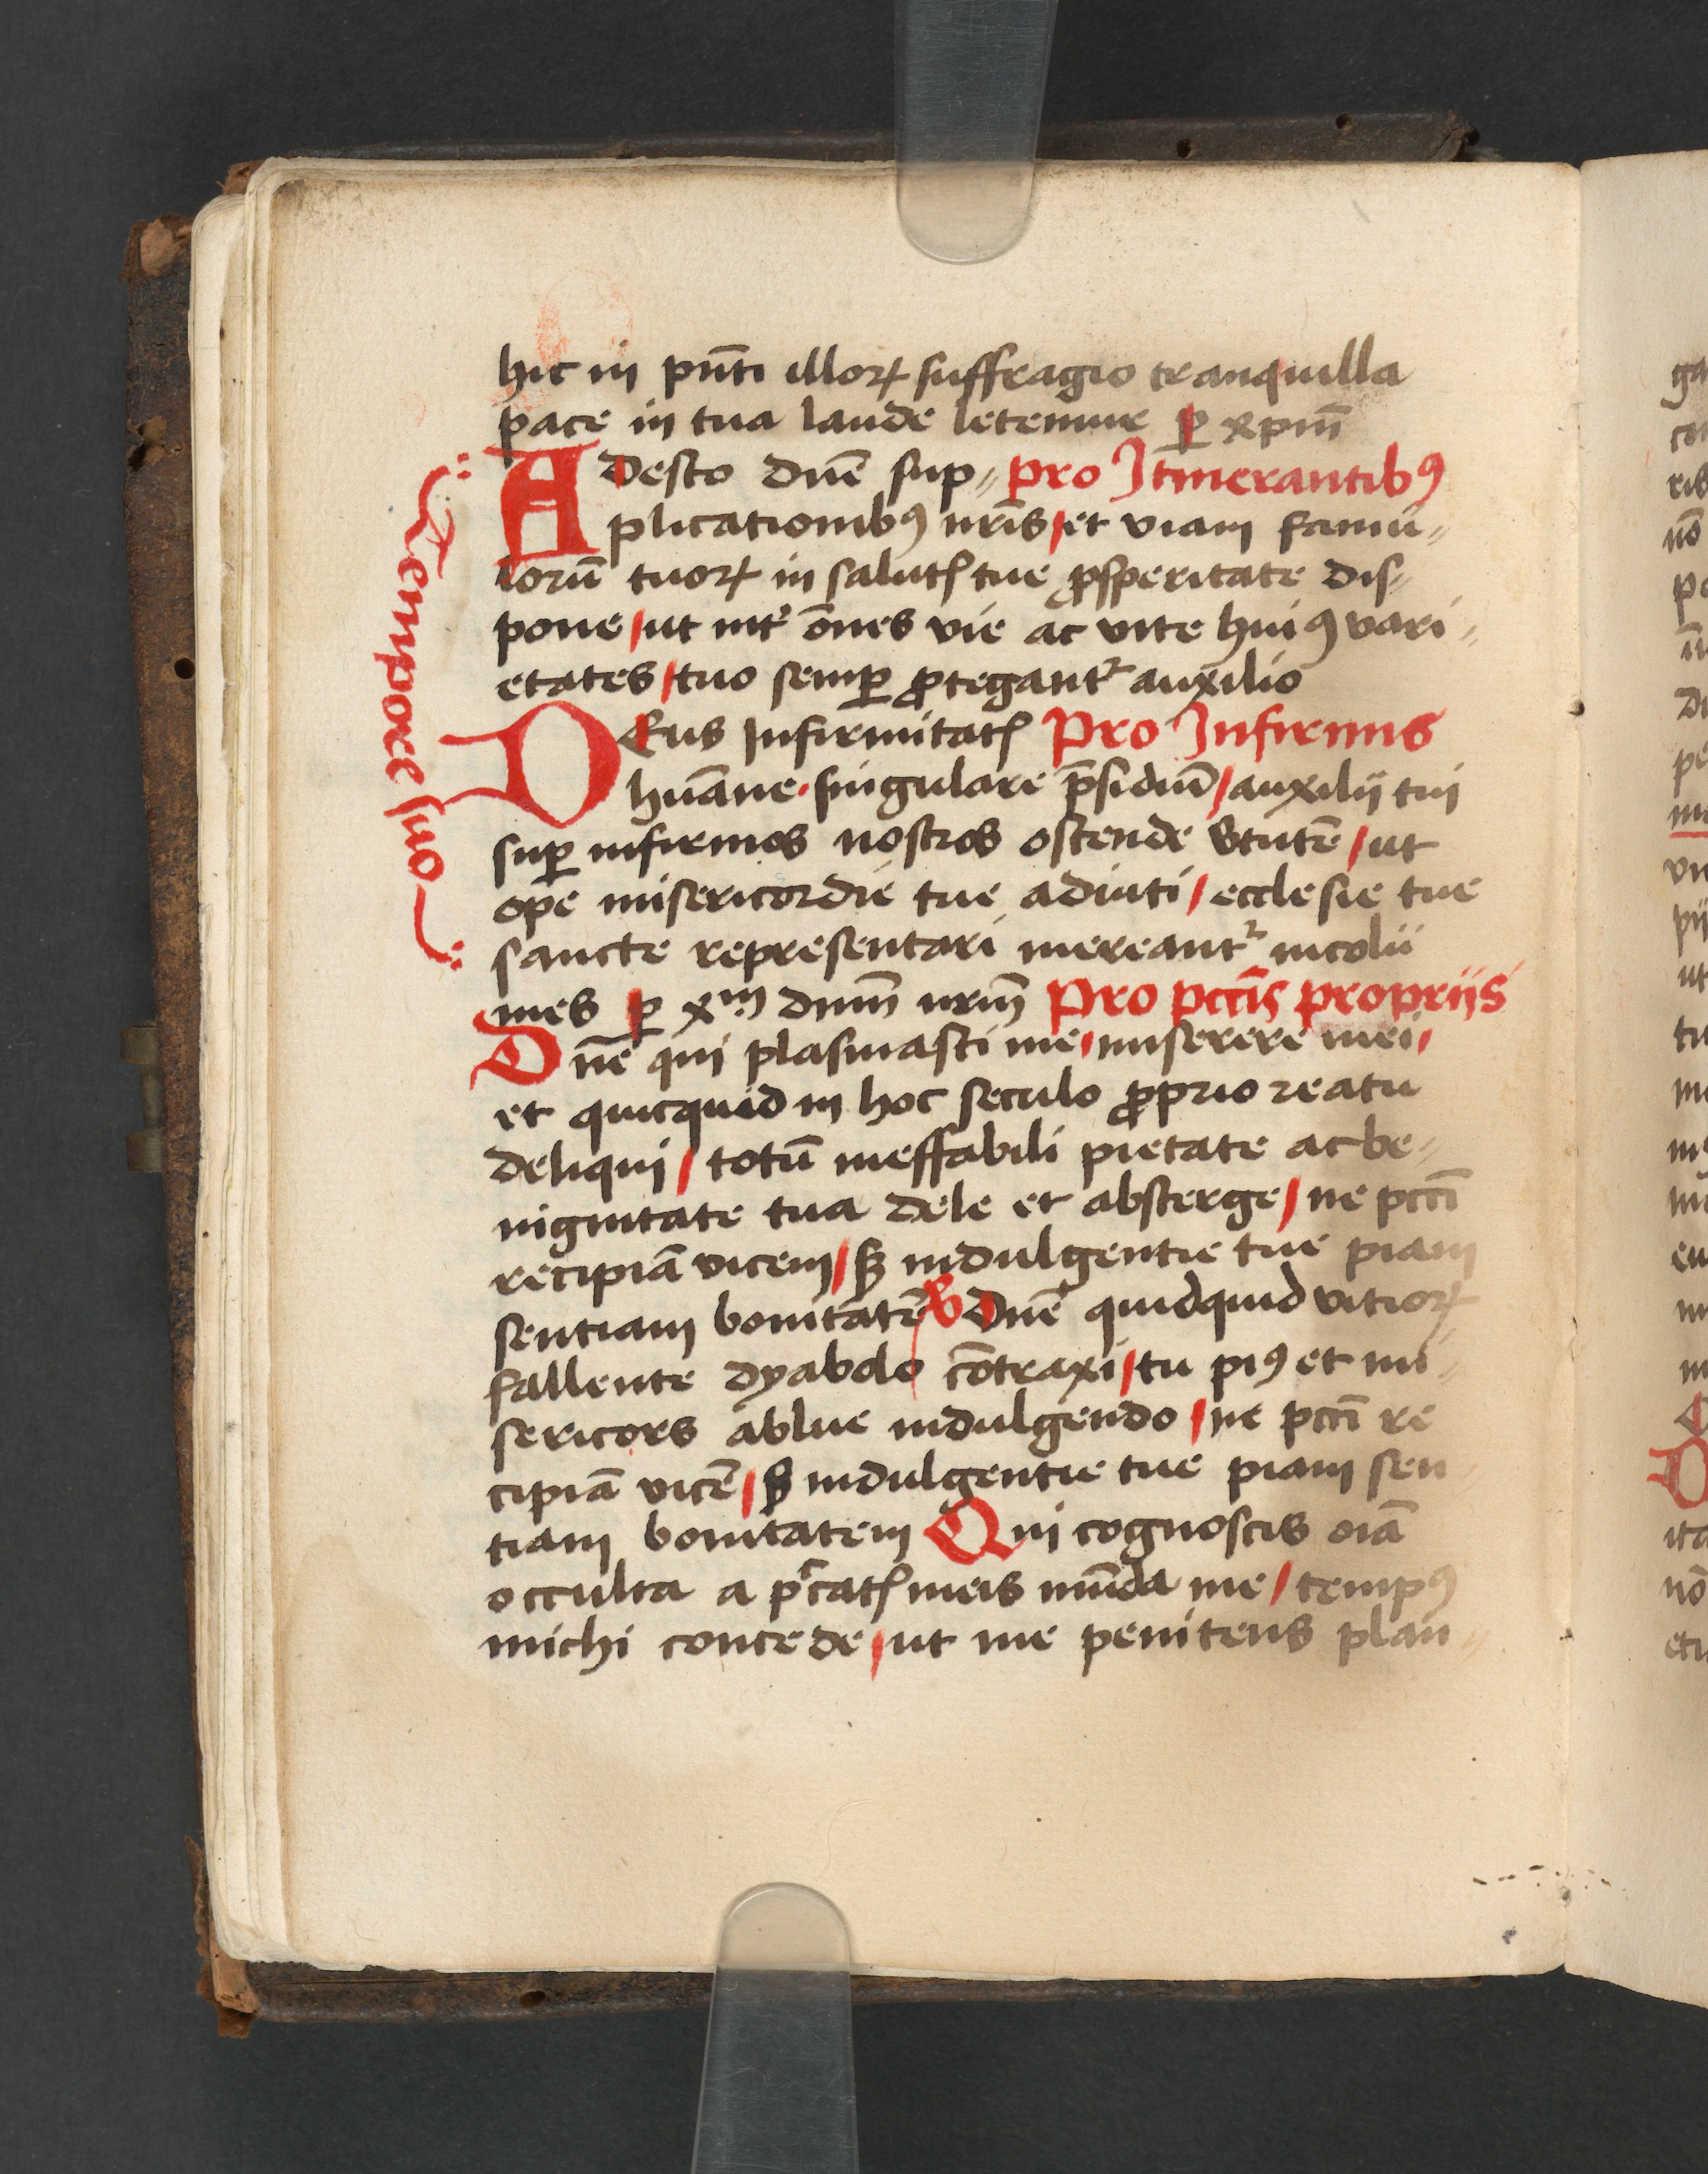 hic in pn̄ti illoꝝ suffragio tranquilla
pace in tua laude letemur ꝑ xpm̄
Adesto dn̄e sup⸗ pro Itinerantibꝰ
plicationibꝰ nr̄is/et viam famu⸗
lorū tuoꝝ in salutꝭ tue ꝓsperitate dis⸗
pone/ut int̓ om̄es vie ac vite huiꝰ vari⸗
etates/tuo semꝑ ꝓtegant᷑ auxilio
DEus Infirmitatꝭ Pro Infirmis
hūane·singulare p̄sidiū/auxilij tui
suꝑ infirmos nostros ostende v̓tutē/ut
ope misericordie tue adiuti/ecclesie tue
sancte representari mereant᷑ incolu
mes ꝑ xm̄ dnm̄ nrm̄ Pro pcc̄is proprijs
Dn̄e qui plasmasti me/miserere mei/
et quicquid in hoc seculo ꝓprio reatu
deliqui/totū ineffabili pietate ac be⸗
nignitate tua dele et absterge/ne pcc̄i
recipiā vicem/sꝫ indulgentie tue piam
sentiam bonitatē V Dn̄e quidquid vitioꝝ
fallente dyabolo cōtraxi/tu piꝰ et mi⸗
sericors ablue indulgendo/ne pcc̄i re
cipiā vicē/sꝫ indulgentie tue piam sen
tiam bonitatem Qui cognoscis oīa
occulta a pͨcatꝭ meis mūda me/tempꝰ
michi concede/ut me penitens plan⸗
Tempore suo